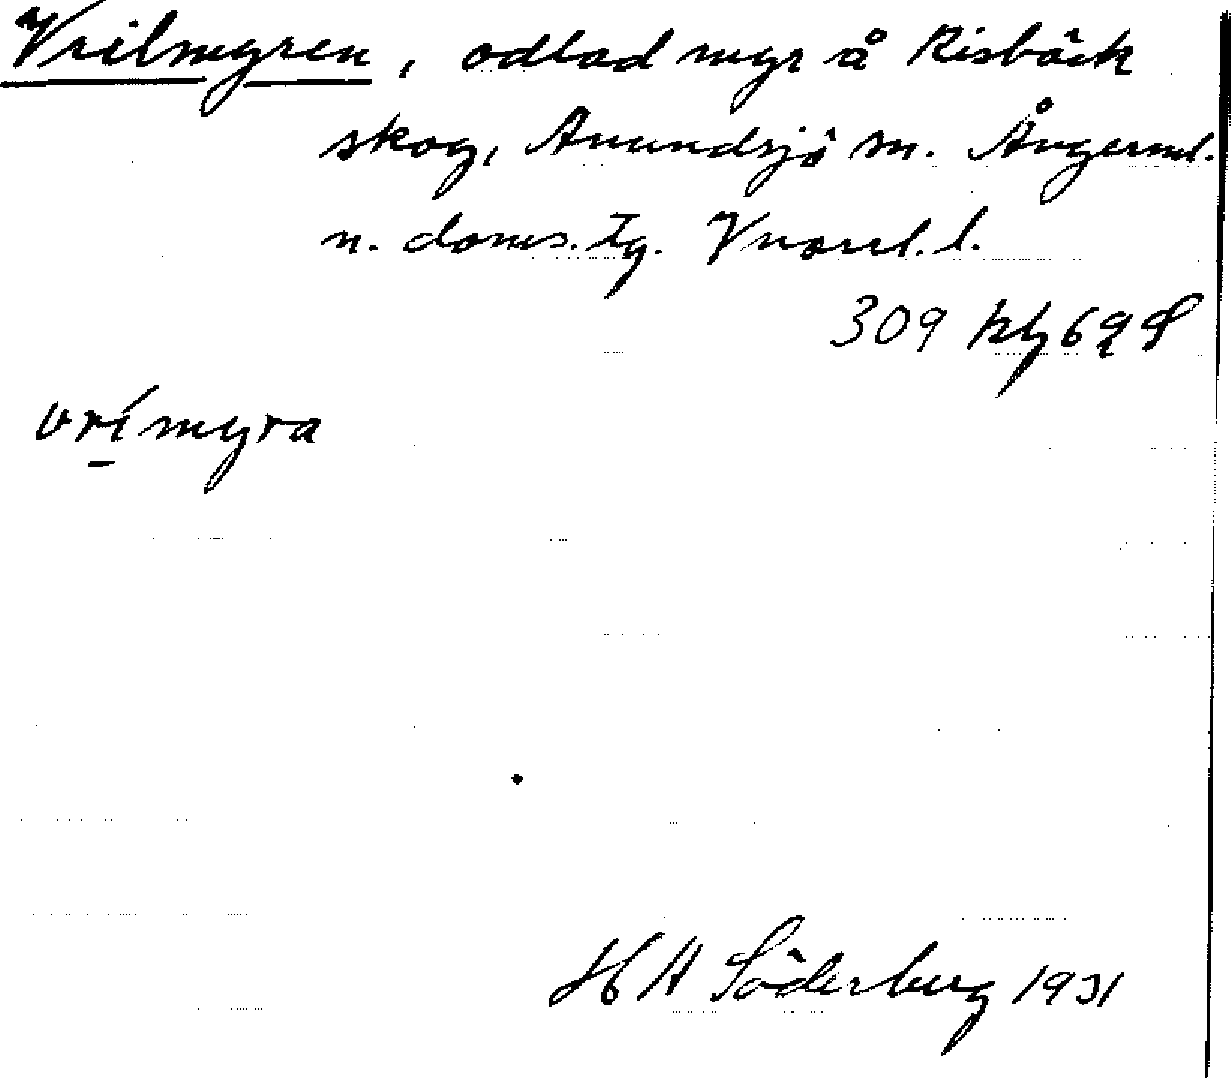 Vrilmyren, odlad myr å Risbäck
skog, Anundsjö sn. Ångerml.
n. doms. Tg. Vnorrl. l.
309 kbj 69
vrímyra
H A Söderberg 1931